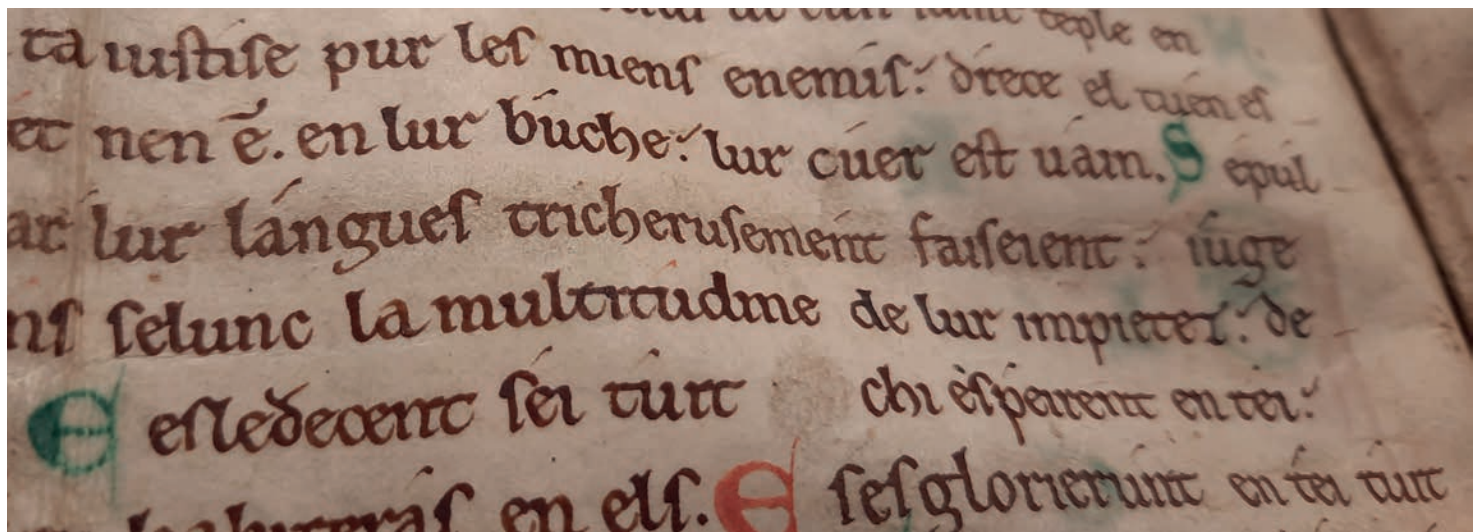 temple en
ta iustise pur les miens enemis: drece el tuen es
et nen ē. en lur buche: lur cuer est uain. Sepul
ar lur langues tricherusement faiseient: iuge
ns selunc la multitudine de lur impietez: de
E esledecent sei tuit chi espeirent en tei:
habiteras en els. E sesglorierunt en tei tuit